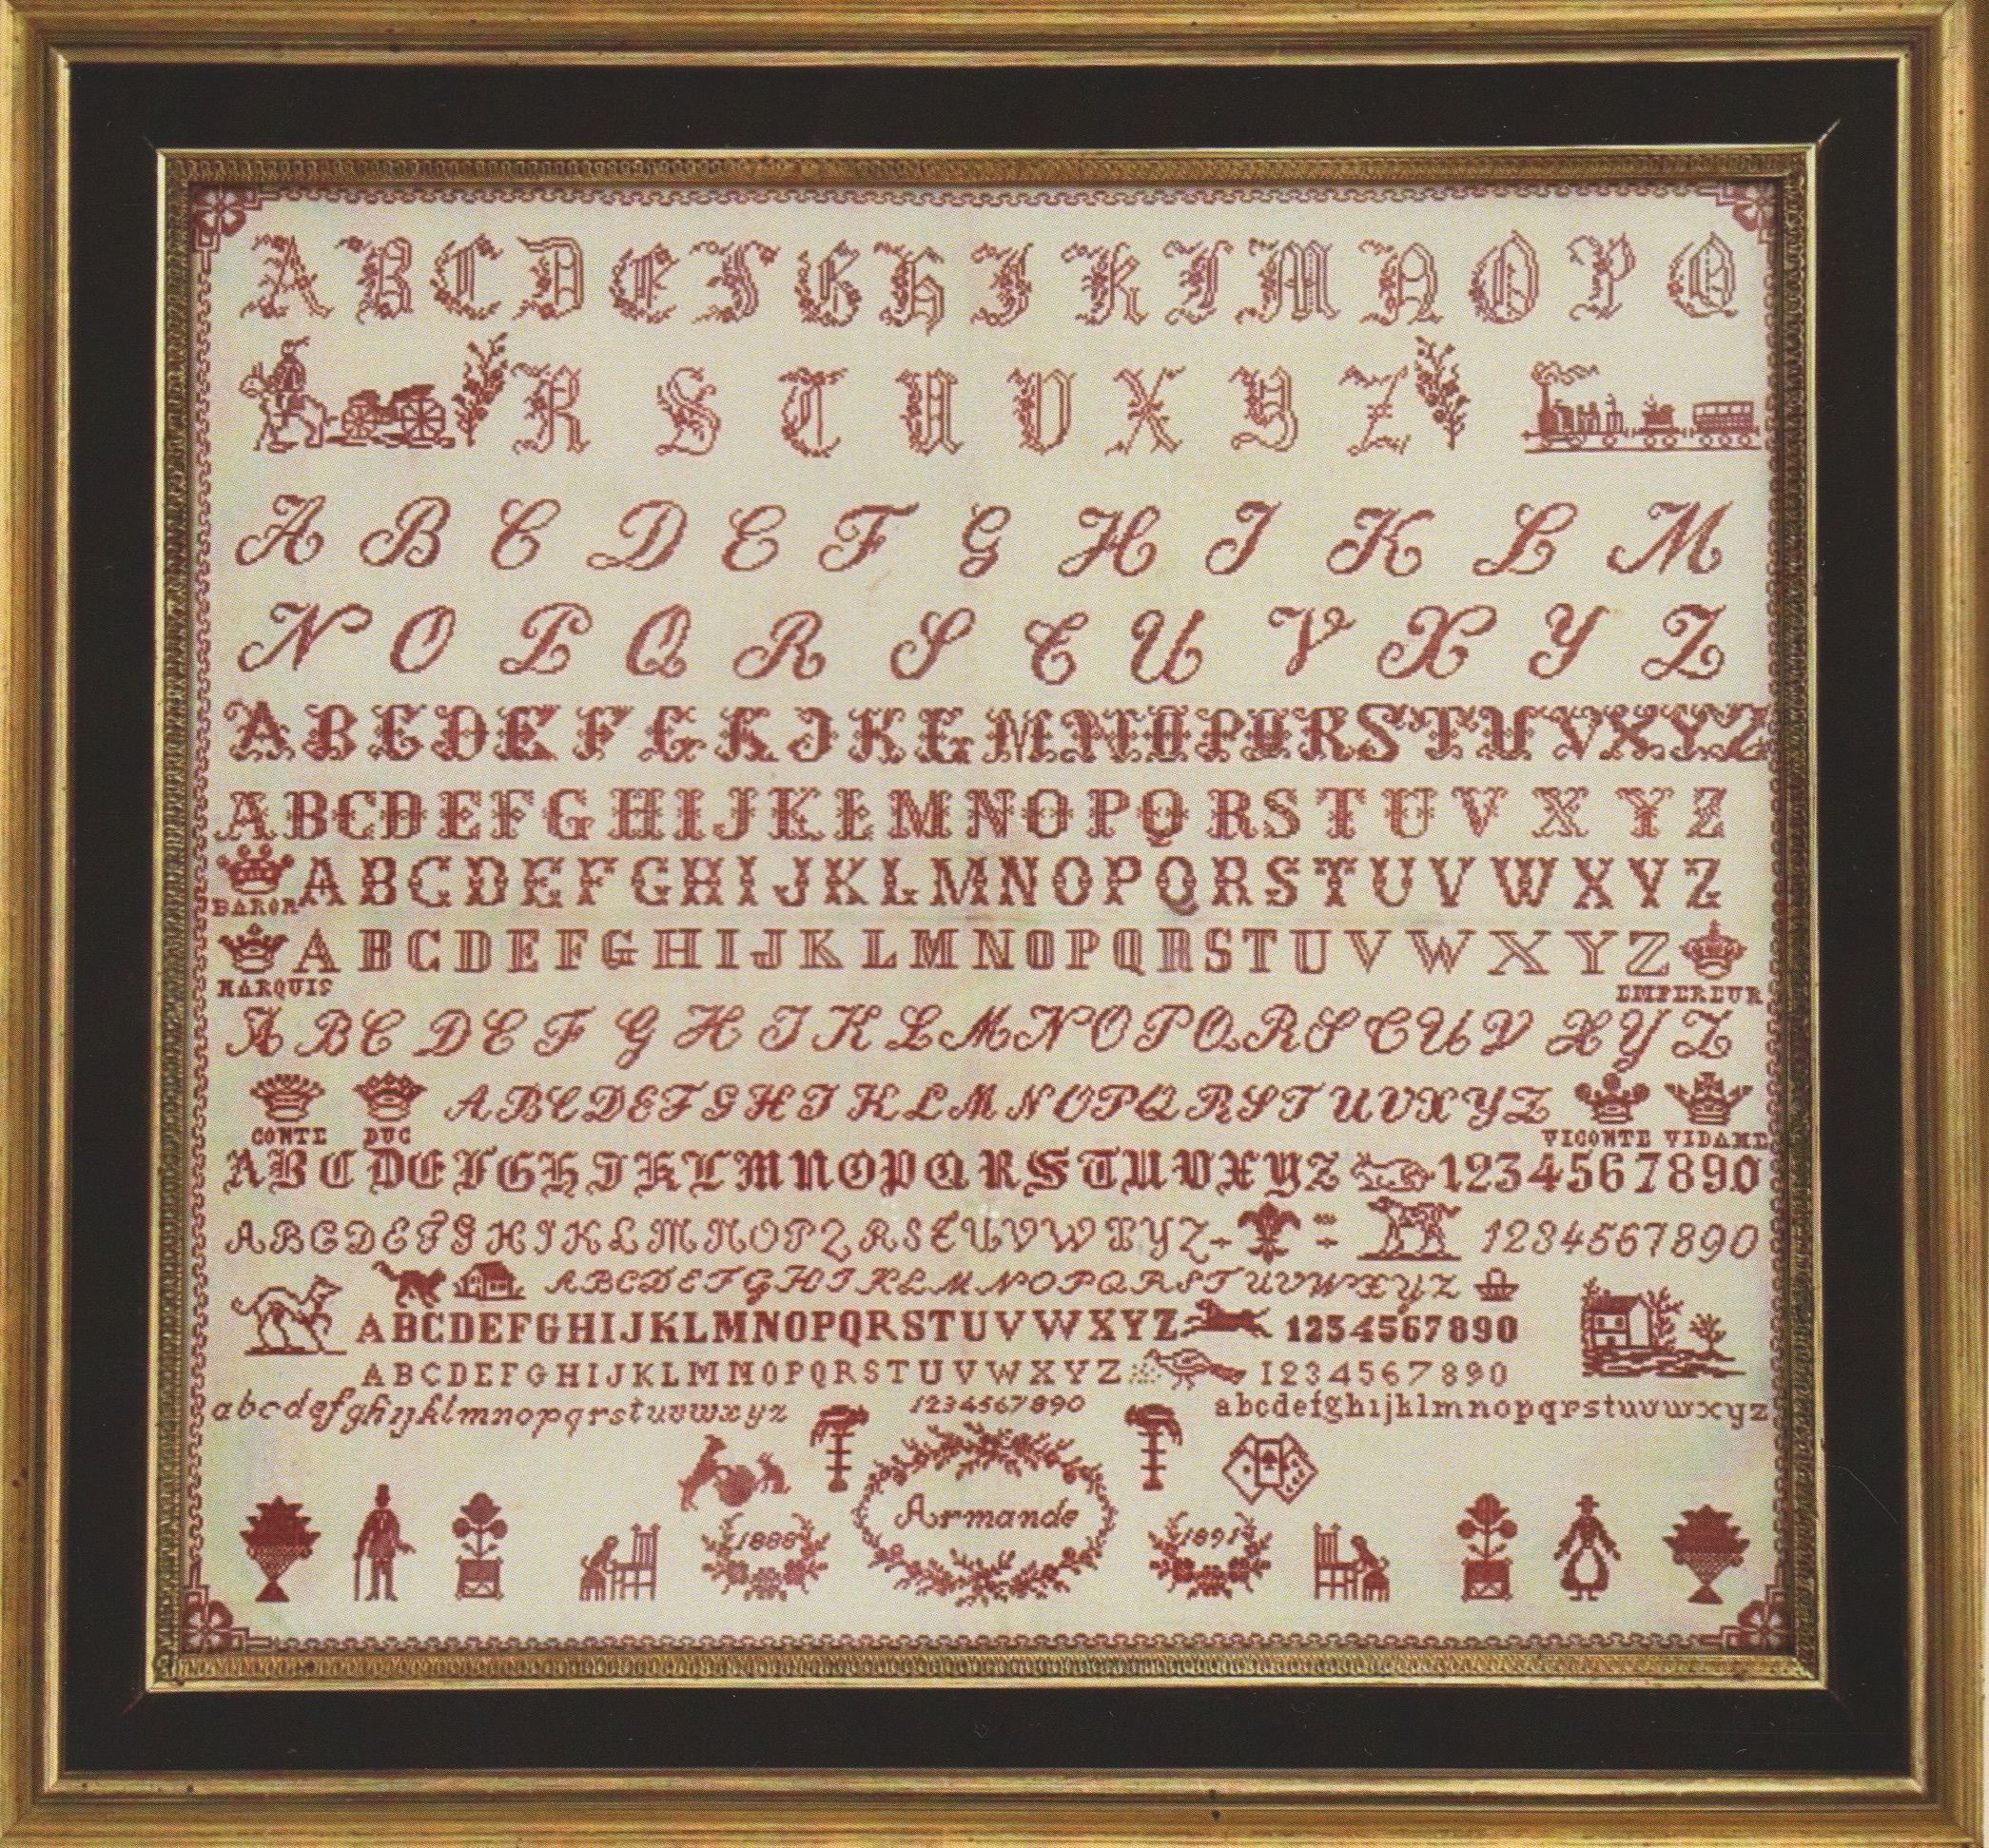 A B C D E F G H I K L M N O P Q
R S T U V X Y Z
A B C D E F G H I K L M
N O P Q R S T U V X Y Z
A B C D E F G K J K L M N O P Q R S T U V X Y Z
A B C D E F G H I J K L M N O P Q R S T U V X Y Z
A B C D E F G H I J K L M N O P Q R S T U V W X Y Z
BARON
A B C D E F G H I J K L M N O P Q R S T U V W X Y Z
MARQUIS EMPEREUR
A B C D E F G H I K L M N O P Q R S T U V X Y Z
A B C D E F G H I K L M N O P Q R S T U V X Y Z
COMTE DUC VICOMTE VIDAME
A B C D E F G H I K L M N O P Q R S T U V X Y Z 1234567890
A B C D E F G H I K L M N O P Q R S T U V W X Y Z 1234567890
A B C D E F G H I K L M N O P Q R S T U V W X Y Z
A B C D E F G H I J K L M N O P Q R S T U V W X Y Z 1234567890
A B C D E F G H I J K L M N O P Q R S T U V W X Y Z 1234567890
abcdefghijklmnopqrstuvwxyz 1234567890 abcdefghijklmnopqrstuvwxyz
Armande
1888 1891